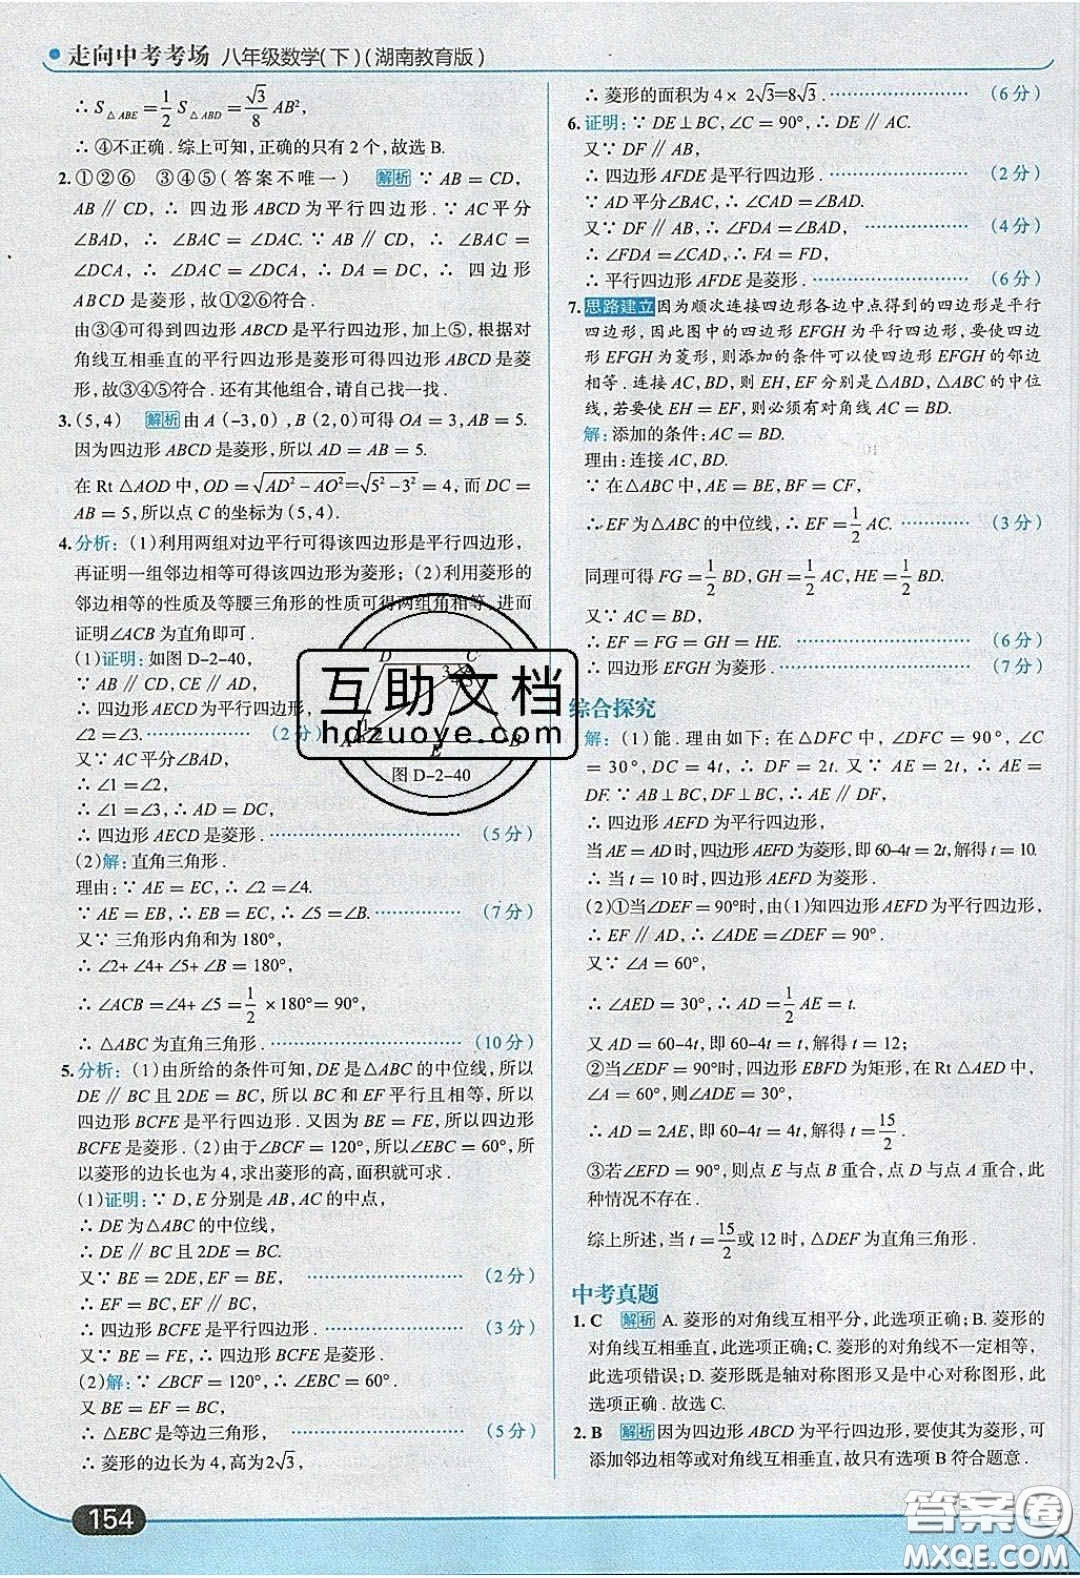 走向中考考场 八年级数学(下)(湖南教育版)
∴ S△ABE = 1/2 S△ABD = √3/8 AB²,
∴ ④不正确.综上可知,正确的只有2个,故选B.
2.①②⑥ ③④⑤(答案不唯一) 解析 ∵ AB = CD,
AB∥CD,∴ 四边形ABCD为平行四边形.∵ AC平分
∠BAD,∴ ∠BAC = ∠DAC.∵ AB∥CD,∴ ∠BAC =
∠DCA,∴ ∠DAC = ∠DCA,∴ DA = DC,∴ 四边形
ABCD是菱形,故①②⑥符合.
由③④可得到四边形ABCD是平行四边形,加上⑤,根据对
角线互相垂直的平行四边形是菱形可得四边形ABCD是菱
形,故③④⑤符合.还有其他组合,请自己找一找.
3.(5,4) 解析 由A(-3,0),B(2,0)可得OA = 3,AB = 5.
因为四边形ABCD是菱形,所以AD = AB = 5.
在Rt△AOD中,OD = √(AD²-AO²) = √(5²-3²) = 4,而DC =
AB = 5,所以点C的坐标为(5,4).
4.分析:(1)利用两组对边平行可得该四边形是平行四边形,
再证明一组邻边相等可得该四边形为菱形;(2)利用菱形的
邻边相等的性质及等腰三角形的性质可得两组角相等,进而
证明∠ACB为直角即可.
(1)证明:如图D-2-40,
∵ AB∥CD,CE∥AD,
∴ 四边形AECD为平行四边形,
∠2 = ∠3. (2分)
又∵ AC平分∠BAD,
∴ ∠1 = ∠2,
∴ ∠1 = ∠3,∴ AD = DC,
∴ 四边形AECD是菱形. (5分)
(2)解:直角三角形.
理由:∵ AE = EC,∴ ∠2 = ∠4.
∵ AE = EB,∴ EB = EC,∴ ∠5 = ∠B. (7分)
又∵ 三角形内角和为180°,
∴ ∠2+∠4+∠5+∠B = 180°,
∴ ∠ACB = ∠4+∠5 = 1/2 ×180° = 90°,
∴ △ABC为直角三角形. (10分)
5.分析:(1)由所给的条件可知,DE是△ABC的中位线,所以
DE∥BC且2DE = BC,所以BC和EF平行且相等,所以
四边形BCFE是平行四边形.又因为BE = FE,所以四边形
BCFE是菱形.(2)由于∠BCF = 120°,所以∠EBC = 60°,所
以菱形的边长也为4,求出菱形的高,面积就可求.
(1)证明:∵ D,E分别是AB,AC的中点,
∴ DE为△ABC的中位线,
∴ DE∥BC且2DE = BC.
又∵ BE = 2DE,EF = BE, (2分)
∴ EF = BC,EF∥BC,
∴ 四边形BCFE是平行四边形. (3分)
又∵ BE = FE,∴ 四边形BCFE是菱形.
(2)解:∵ ∠BCF = 120°,∴ ∠EBC = 60°.
又BE = EF = BC,
∴ △EBC是等边三角形, (5分)
∴ 菱形的边长为4,高为2√3,
D C 3 4 5 1 A E B
图D-2-40
互助文档
hdzuoye.com
∴ 菱形的面积为4×2√3=8√3. (6分)
6.证明:∵ DE⊥BC,∠C = 90°,∴ DE∥AC.
又∵ DF∥AB,
∴ 四边形AFDE是平行四边形. (2分)
∵ AD平分∠BAC,∴ ∠CAD = ∠BAD.
又∵ DF∥AB,∴ ∠FDA = ∠BAD, (4分)
∴ ∠FDA = ∠CAD,∴ FA = FD,
∴ 平行四边形AFDE是菱形. (6分)
7.思路建立 因为顺次连接四边形各边中点得到的四边形是平行
四边形,因此图中的四边形EFGH为平行四边形,要使四边
形EFGH为菱形,则添加的条件可以使四边形EFGH的邻边
相等.连接AC,BD,则EH,EF分别是△ABD,△ABC的中位
线,若要使EH = EF,则必须有对角线AC = BD.
解:添加的条件:AC = BD.
理由:连接AC,BD.
∵ 在△ABC中,AE = BE,BF = CF,
∴ EF为△ABC的中位线,∴ EF = 1/2 AC. (3分)
同理可得FG = 1/2 BD,GH = 1/2 AC,HE = 1/2 BD.
又∵ AC = BD,
∴ EF = FG = GH = HE. (6分)
∴ 四边形EFGH为菱形. (7分)
综合探究
解:(1)能.理由如下:在△DFC中,∠DFC = 90°,∠C
= 30°,DC = 4t,∴ DF = 2t.又∵ AE = 2t,∴ AE =
DF.∵ AB⊥BC,DF⊥BC,∴ AE∥DF,
∴ 四边形AEFD为平行四边形,
当AE = AD时,四边形AEFD为菱形,即60-4t = 2t,解得t = 10.
∴ 当t = 10时,四边形AEFD为菱形.
(2)①当∠DEF = 90°时,由(1)知四边形AEFD为平行四边形,
∴ EF∥AD,∴ ∠ADE = ∠DEF = 90°.
又∵ ∠A = 60°,
∴ ∠AED = 30°,∴ AD = 1/2 AE = t.
又AD = 60-4t,即60-4t = t,解得t = 12;
②当∠EDF = 90°时,四边形EBFD为矩形,在Rt△AED中,
∠A = 60°,则∠ADE = 30°,
∴ AD = 2AE,即60-4t = 4t,解得t = 15/2.
③若∠EFD = 90°,则点E与点B重合,点D与点A重合,此
种情况不存在.
综上所述,当t = 15/2或12时,△DEF为直角三角形.
中考真题
1. C 解析 A.菱形的对角线互相平分,此选项正确;B.菱形的
对角线互相垂直,此选项正确;C.菱形的对角线不一定相等,
此选项错误;D.菱形既是轴对称图形又是中心对称图形,此
选项正确.故选C.
2. B 解析 因为四边形ABCD为平行四边形,要使其为菱形,可
添加邻边相等或对角线互相垂直,故只有选项B符合题意.
154
答案圈
MXQE.COM